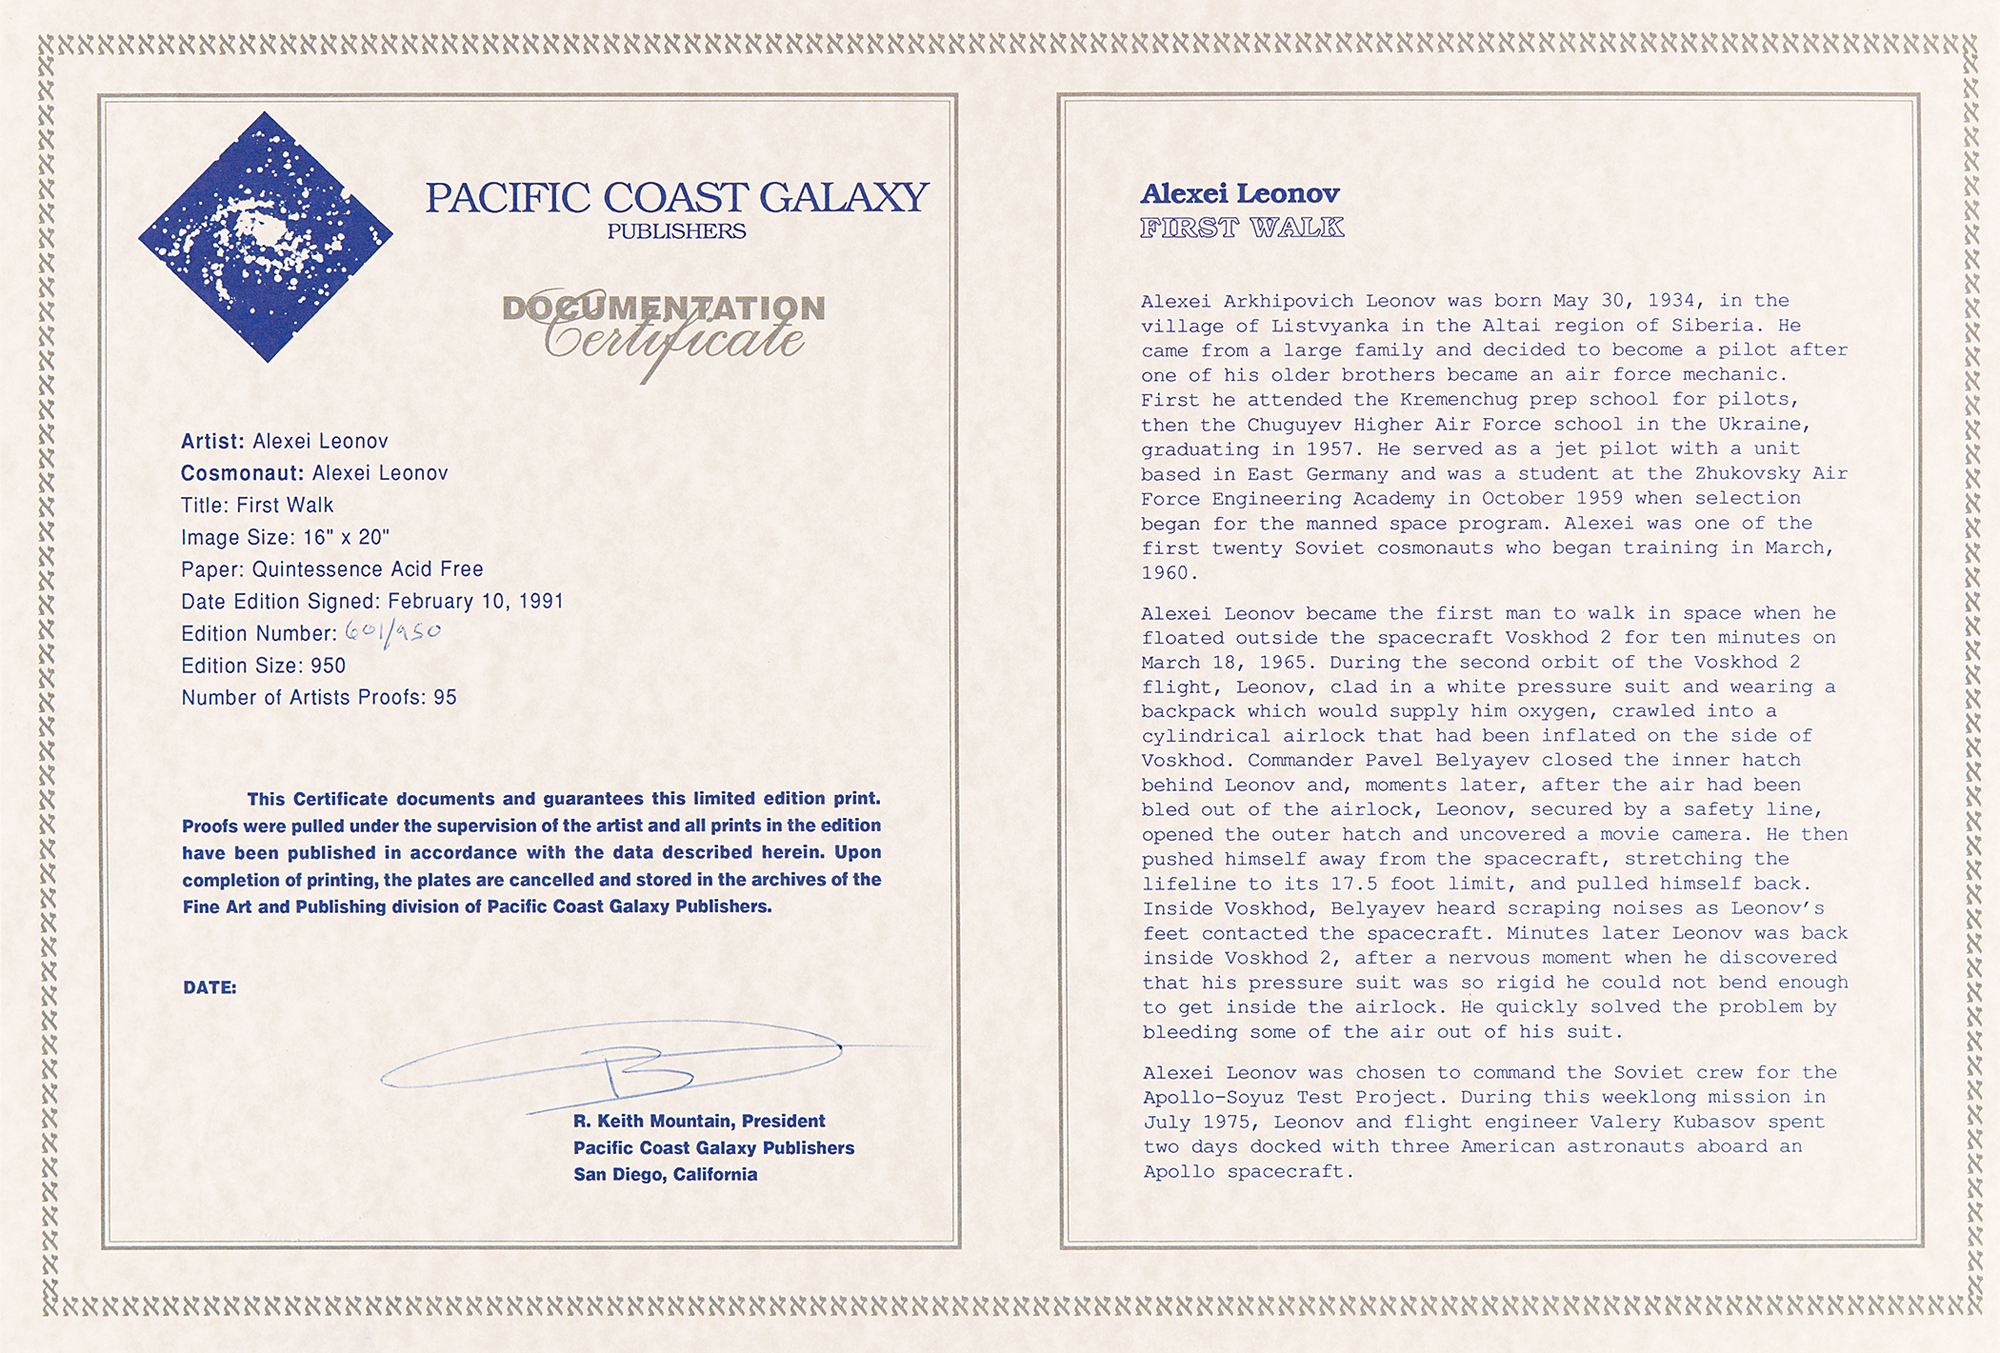 PACIFIC COAST GALAXY
PUBLISHERS
DOCUMENTATION
Certificate
Artist: Alexei Leonov
Cosmonaut: Alexei Leonov
Title: First Walk
Image Size: 16" x 20"
Paper: Quintessence Acid Free
Date Edition Signed: February 10, 1991
Edition Number: 601/950
Edition Size: 950
Number of Artists Proofs: 95
This Certificate documents and guarantees this limited edition print.
Proofs were pulled under the supervision of the artist and all prints in the edition
have been published in accordance with the data described herein. Upon
completion of printing, the plates are cancelled and stored in the archives of the
Fine Art and Publishing division of Pacific Coast Galaxy Publishers.
DATE:
R. Keith Mountain, President
Pacific Coast Galaxy Publishers
San Diego, California
Alexei Leonov
FIRST WALK
Alexei Arkhipovich Leonov was born May 30, 1934, in the
village of Listvyanka in the Altai region of Siberia. He
came from a large family and decided to become a pilot after
one of his older brothers became an air force mechanic.
First he attended the Kremenchug prep school for pilots,
then the Chuguyev Higher Air Force school in the Ukraine,
graduating in 1957. He served as a jet pilot with a unit
based in East Germany and was a student at the Zhukovsky Air
Force Engineering Academy in October 1959 when selection
began for the manned space program. Alexei was one of the
first twenty Soviet cosmonauts who began training in March,
1960.
Alexei Leonov became the first man to walk in space when he
floated outside the spacecraft Voskhod 2 for ten minutes on
March 18, 1965. During the second orbit of the Voskhod 2
flight, Leonov, clad in a white pressure suit and wearing a
backpack which would supply him oxygen, crawled into a
cylindrical airlock that had been inflated on the side of
Voskhod. Commander Pavel Belyayev closed the inner hatch
behind Leonov and, moments later, after the air had been
bled out of the airlock, Leonov, secured by a safety line,
opened the outer hatch and uncovered a movie camera. He then
pushed himself away from the spacecraft, stretching the
lifeline to its 17.5 foot limit, and pulled himself back.
Inside Voskhod, Belyayev heard scraping noises as Leonov's
feet contacted the spacecraft. Minutes later Leonov was back
inside Voskhod 2, after a nervous moment when he discovered
that his pressure suit was so rigid he could not bend enough
to get inside the airlock. He quickly solved the problem by
bleeding some of the air out of his suit.
Alexei Leonov was chosen to command the Soviet crew for the
Apollo-Soyuz Test Project. During this weeklong mission in
July 1975, Leonov and flight engineer Valery Kubasov spent
two days docked with three American astronauts aboard an
Apollo spacecraft.